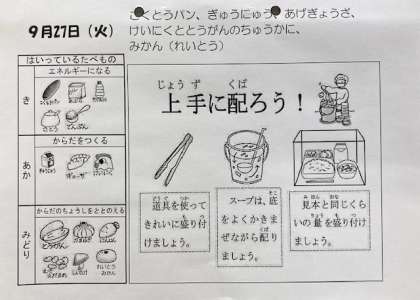 9月27日（火）
こくとうパン、ぎゅうにゅう、あげぎょうざ、
けいにくととうがんのちゅうかに、
みかん（れいとう）
はいっているたべもの
エネルギーになる
き
さとう
でんぷん
からだをつくる
あか
からだのちょうしをととのえる
みどり
とうがん
にんじん
しょうが
れいとう
みかん
じょうず　くば
上手に配ろう！
道具を使って
きれいに盛り付
けましょう。
スープは、底
をよくかきま
ぜながら配り
ましょう。
見本と同じくら
いの量を盛り付け
ましょう。